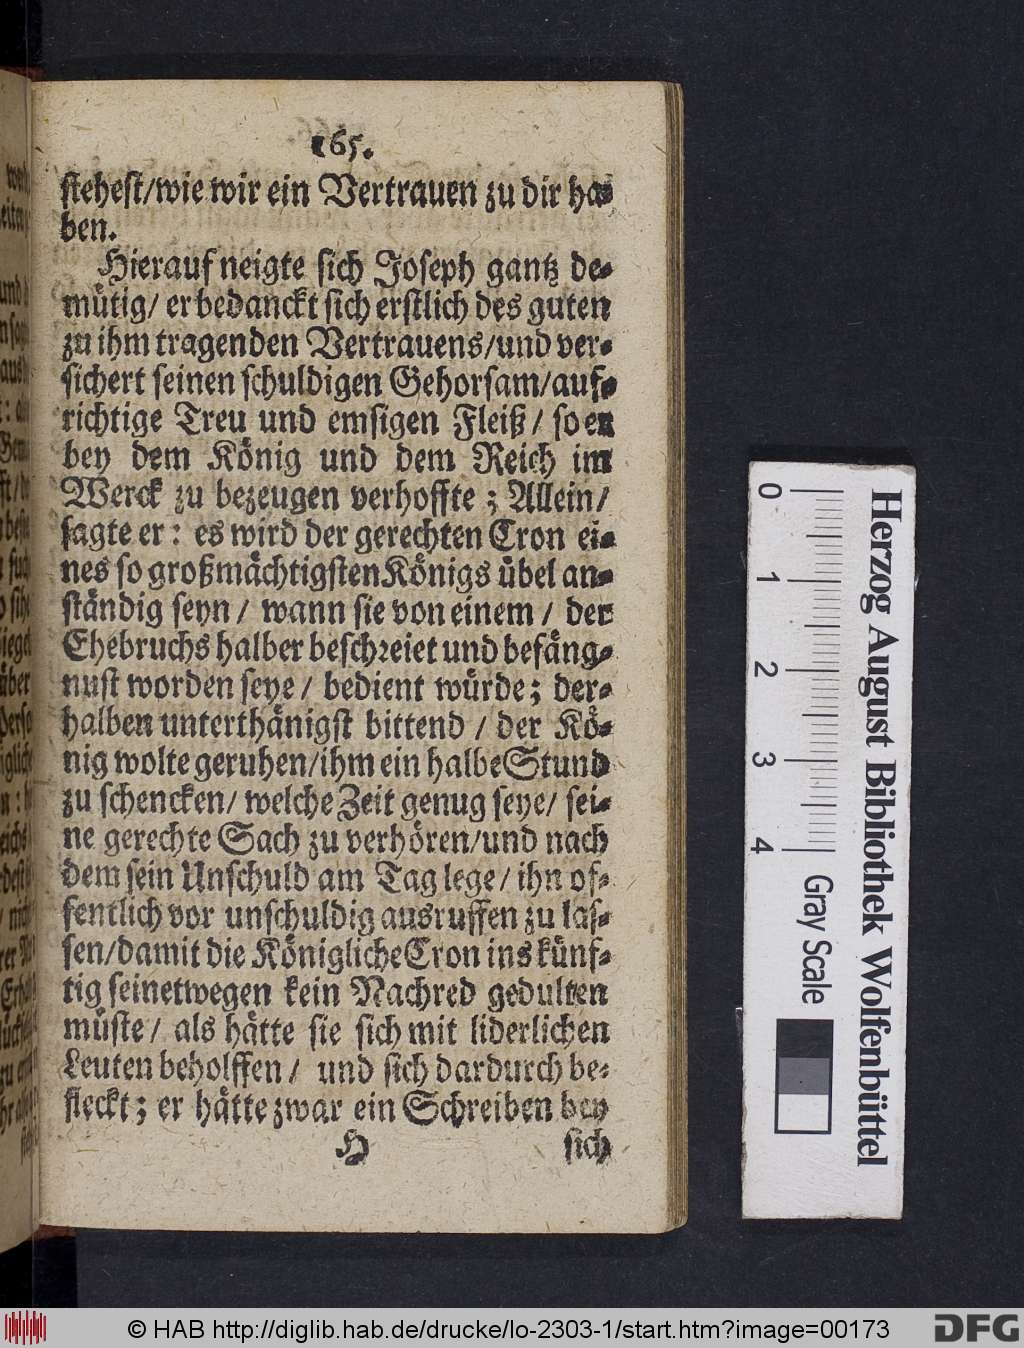 165.
stehest/wie wir ein Vertrauen zu dir ha-
ben.
Hierauf neigte sich Joseph gantz de-
mütig/ er bedanckt sich erstlich des guten
zu ihm tragenden Vertrauens/und ver-
sichert seinen schuldigen Gehorsam/auf-
richtige Treu und emsigen Fleiß/ so er
bey dem König und dem Reich im
Werck zu bezeugen verhoffte; Allein/
sagte er: es wird der gerechten Cron ei-
nes so großmächtigsten Königs übel an-
ständig seyn/ wann sie von einem/ der
Ehebruchs halber beschreiet und befäng-
nust worden seye/ bedient würde; der-
halben unterthänigst bittend/ der Kö-
nig wolte geruhen/ihm ein halbe Stund
zu schencken/ welche Zeit genug seye/ sei-
ne gerechte Sach zu verhören/und nach
dem sein Unschuld am Tag lege/ ihn of-
fentlich vor unschuldig ausruffen zu las-
sen/damit die Königliche Cron ins künf-
tig seinetwegen kein Nachred gedulten
müste/ als hätte sie sich mit liderlichen
Leuten beholffen/ und sich dardurch be-
fleckt; er hätte zwar ein Schreiben bey
H sich
Herzog August Bibliothek Wolfenbüttel
0 1 2 3 4 Gray Scale
© HAB http://diglib.hab.de/drucke/lo-2303-1/start.htm?image=00173
DFG